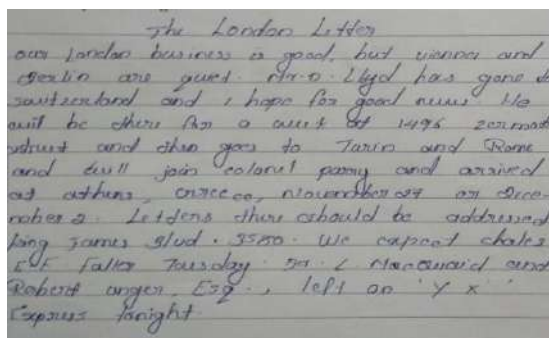 The London Letter
our London business is good, but vienna and
Berlin are quiet. Mr. D. Lloyd has gone to
switzerland and i hope for good news. He
will be there for a week at 1496 zermott
street and then goes to Turin and Rome
and will join colonel parry and arrived
at athens, Greece, November 27 or Dece
mber 2. Letters there should be addressed
king James Blvd. 3580. We expect chales
E. Fuller Tuesday. Dr. L. and
Robert unger, Esq., left on 'Y X'
Express tonight.